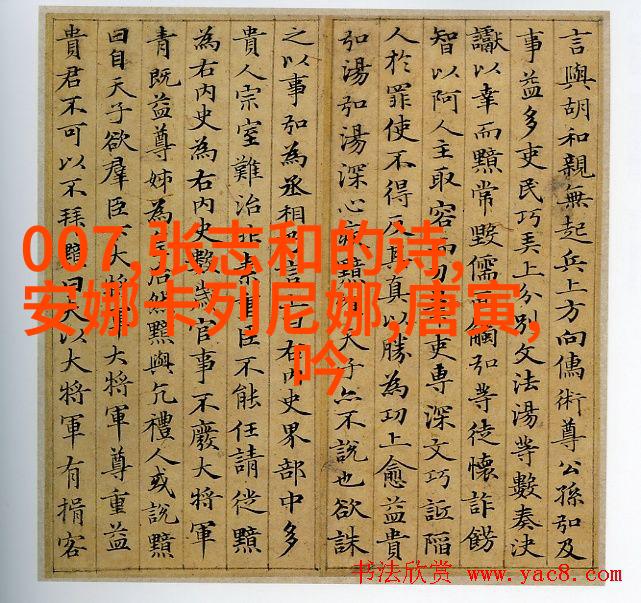 言與胡和親無起兵上方向儒術尊公孫弘及
事益多吏民巧弄上分別文法湯等數奏決
讞以幸而黯常毀儒面觸弘等徒懷詐飾
智以阿人主取容而刀筆吏專深文巧詆陷
人於罪使不得反其真以勝為功上愈益貴
弘湯弘湯深心疾黯天子亦不說也欲誅
之以事弘為丞相言上曰右內史界部中多
貴人宗室難治非素重臣不能任請徙黯
為右內史為右內史數歲官事不廢大將軍
青既益尊姊為后然黯與亢禮人或說黯
曰自天子欲羣臣大將軍大將軍尊重益
貴君不可以不拜黯曰夫以大將軍有揖客
007,张志和的诗,
安娜卡列尼娜,唐寅,
吟
书法欣赏 www.yac8.com